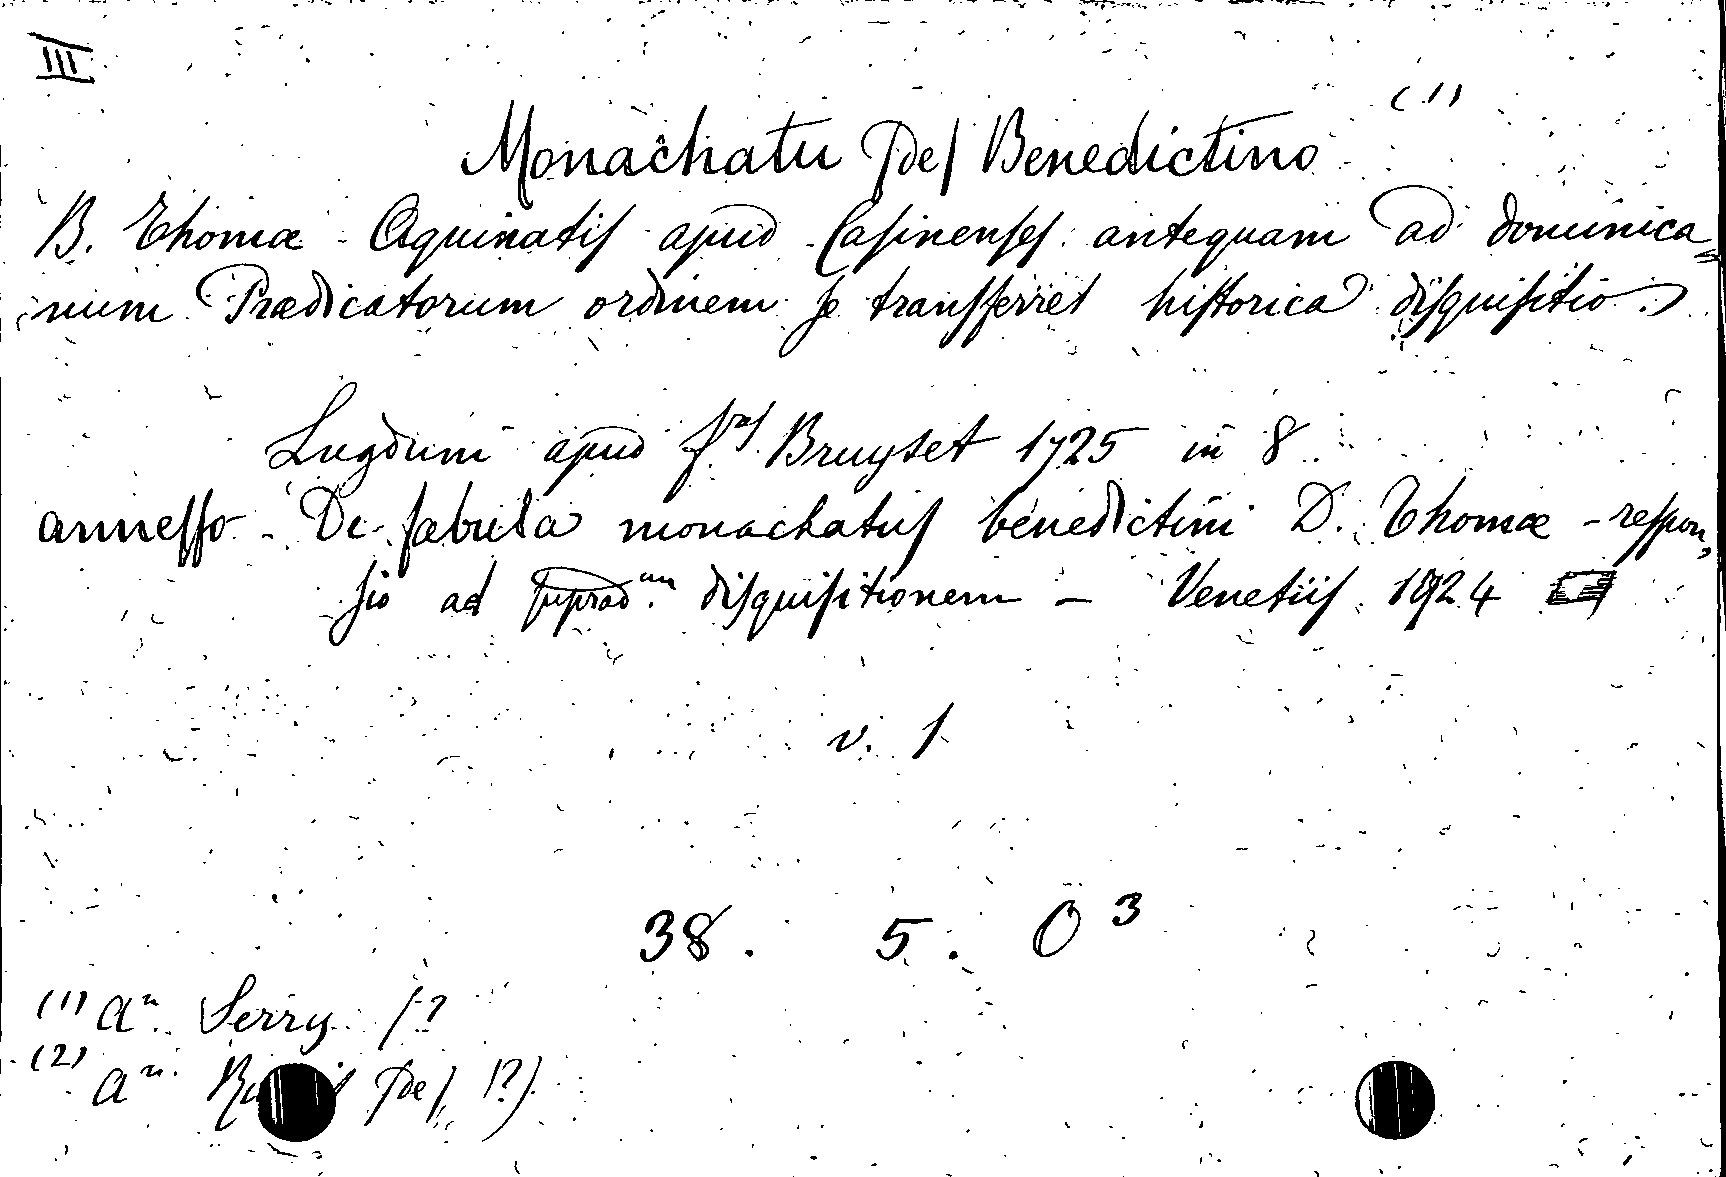 III
(1)
Monachatu (De) Benedictino
B. Thomæ Aquinatis apud Casinenses antequam ad dominica=
num Prædicatorum ordinem se transferret historica disquisitio.
Lugduni apud f.es Bruyset 1725 in 8
annesso - De fabula monachatus benedictini D. Thomæ - respon,
sio ad suprad.am disquisitionem - Venetiis 1924
v. 1
38. 5. O 3
(1) an. Serry (?
(2) an. (De) (?)